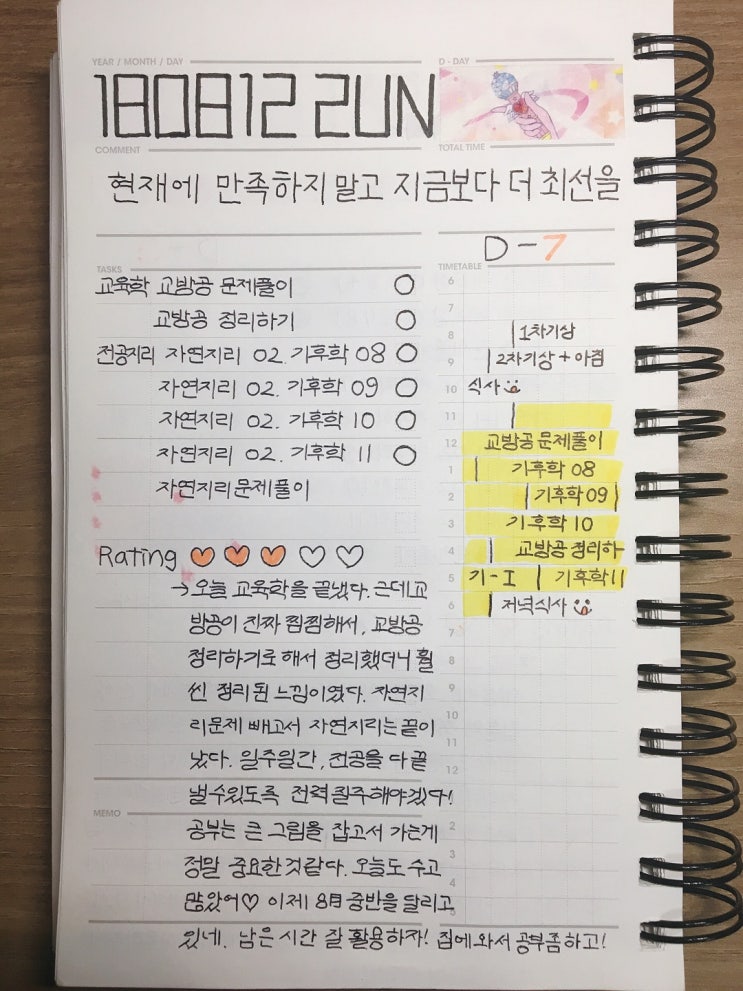 YEAR / MONTH / DAY
D - DAY
180812 2UN
COMMENT
TOTAL TIME
현재에 만족하지 말고 지금보다 더 최선을
D-7
TASKS
교육학 교방공 문제풀이
교방공 정리하기
전공지리 자연지리 02. 기후학 08
자연지리 02. 기후학 09
자연지리 02. 기후학 10
자연지리 02. 기후학 11
자연지리문제풀이
Rating
→ 오늘 교육학을 끝냈다. 근데 교
방공이 진짜 찜찜해서, 교방공
정리하기로 해서 정리했더니 훨
씬 정리된 느낌이였다. 자연지
리문제 빼고서 자연지리는 끝이
났다. 일주일간, 전공을 다 끝
낼수있도록 전력질주해야겠다!
MEMO
공부는 큰 그림을 잡고서 가는게
정말 중요한것같다. 오늘도 수고
많았어♡ 이제 8月 중반을 달리고
있네. 남은 시간 잘 활용하자! 집에 와서 공부좀하고!
TIMETABLE
6
7
8 1차기상
9 2차기상 + 아점
10 식사
11
12 교방공 문제풀이
1 기후학 08
2 기후학 09
3 기후학 10
4 교방공 정리하
5 기-I 기후학 11
6 저녁식사
7
8
9
10
11
12
2
3
4
5